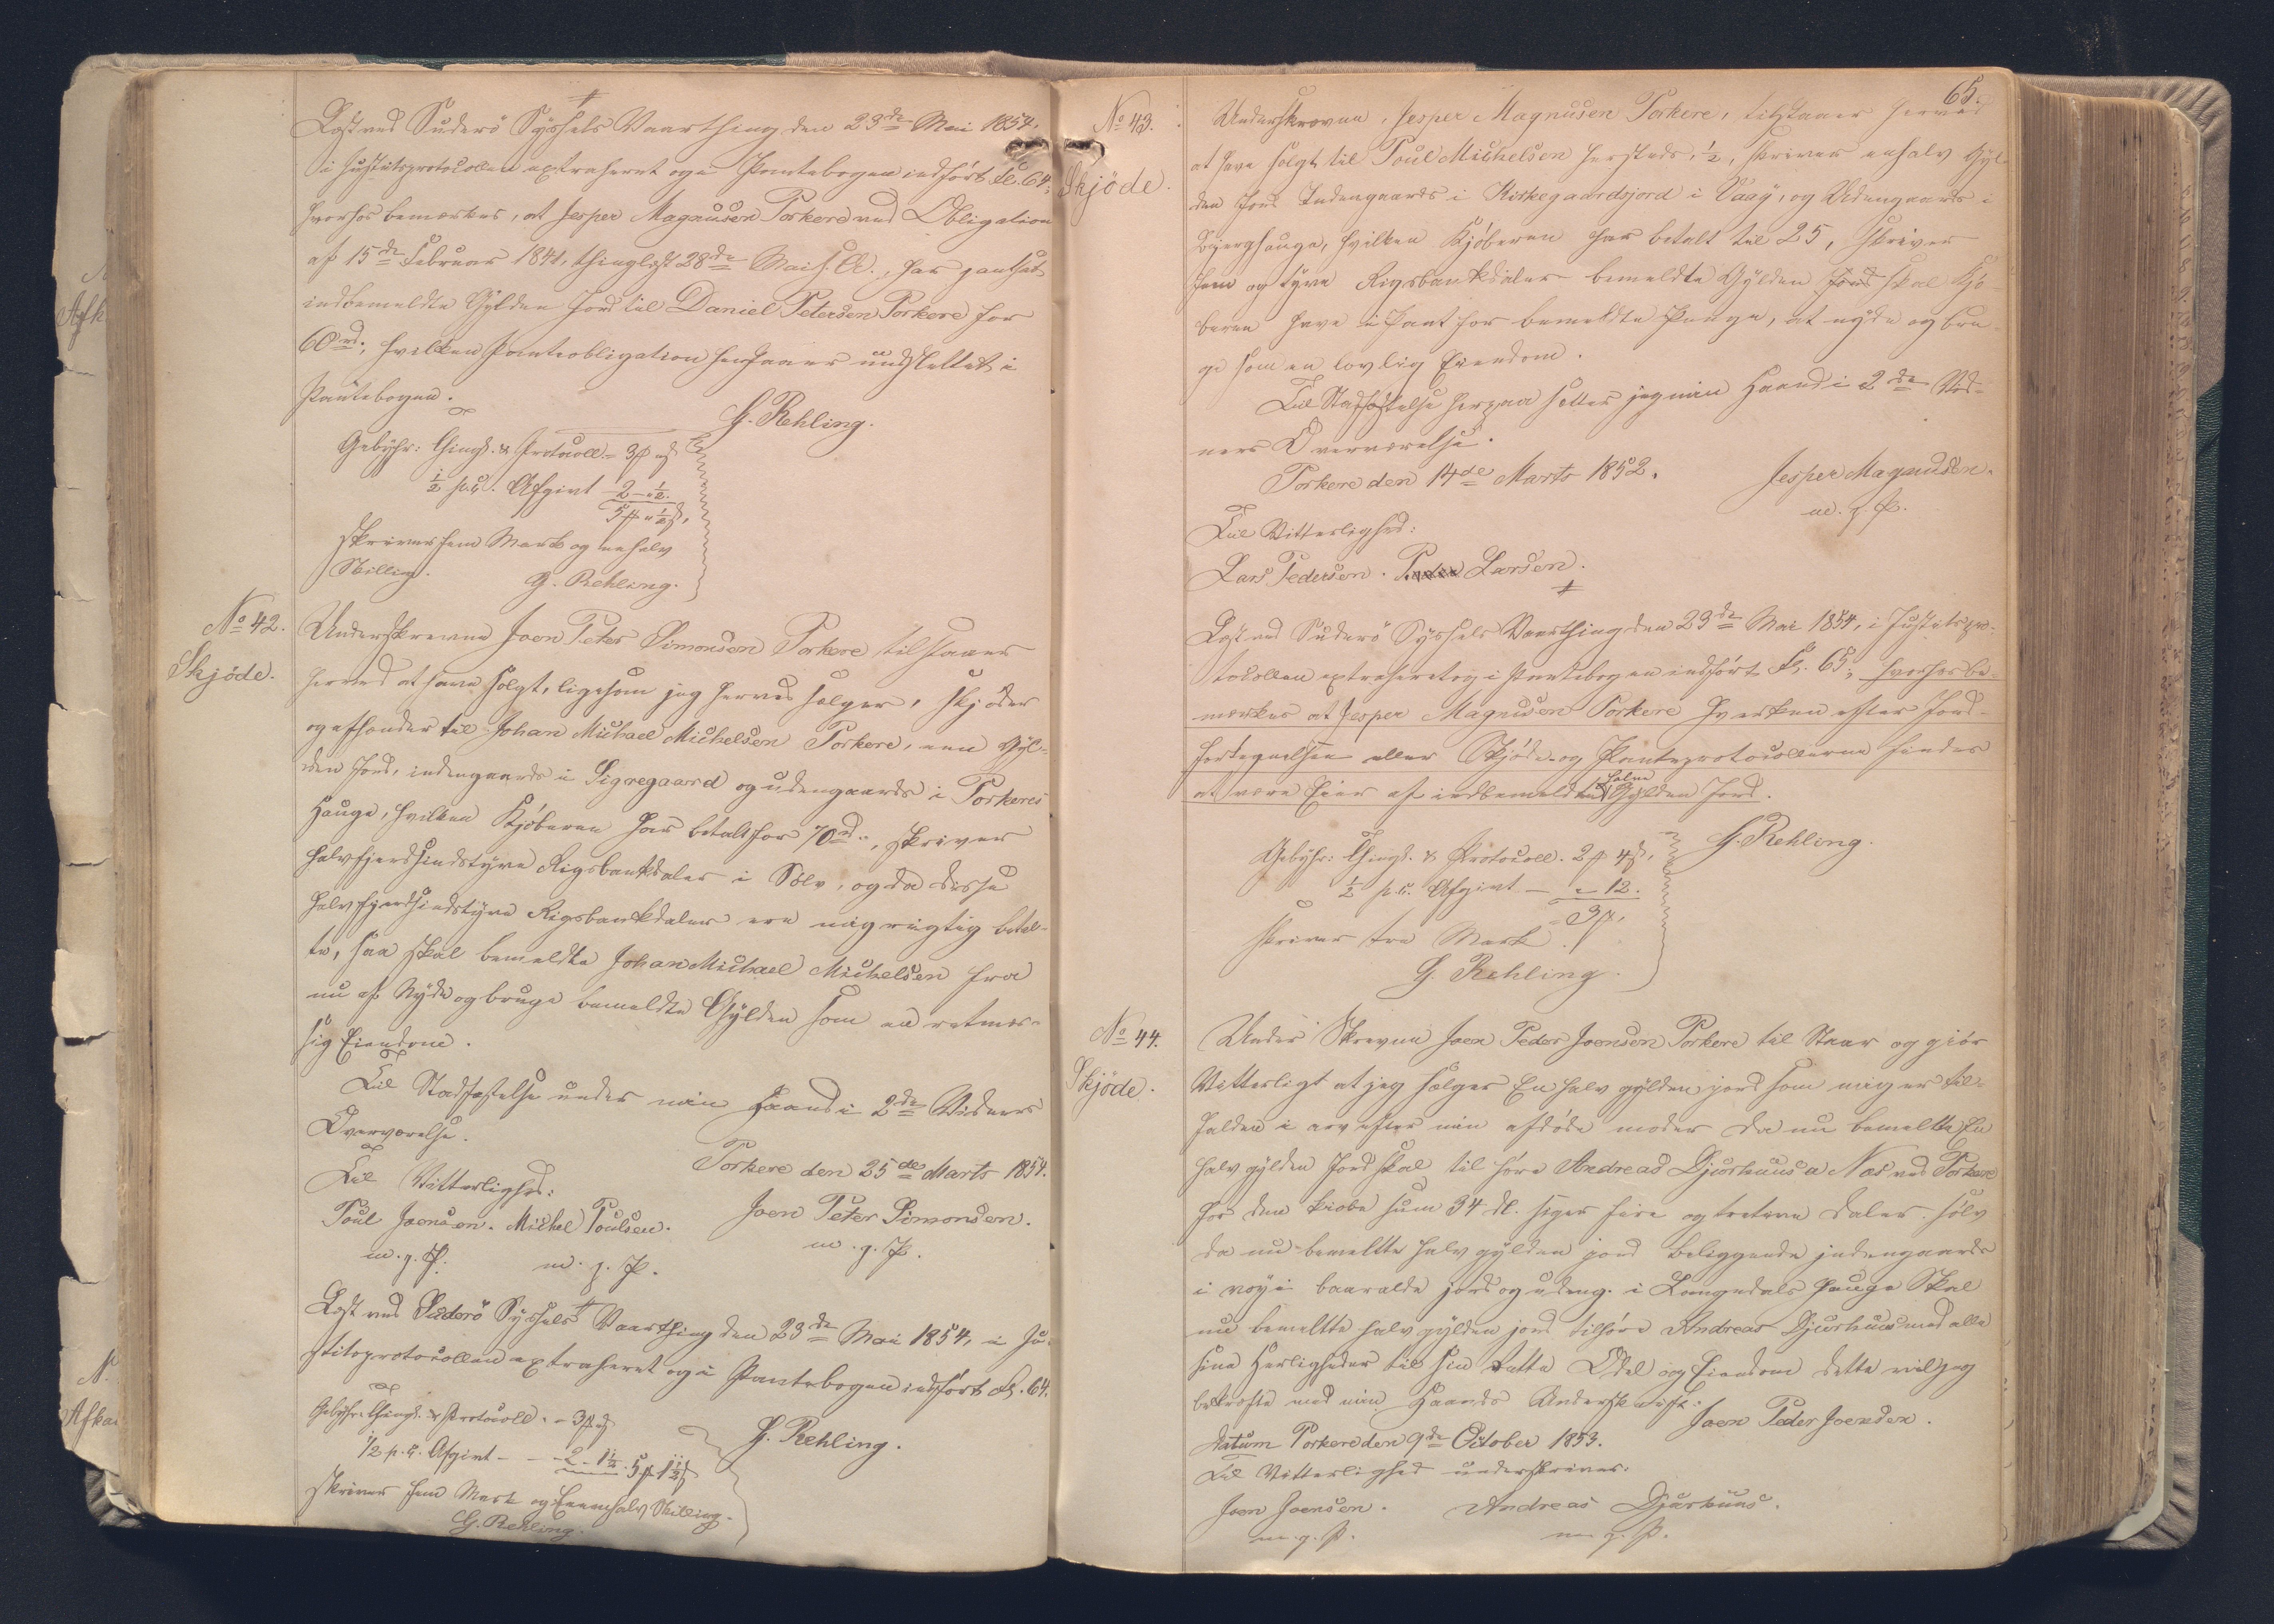 Læst ved Suderö Syssels Vaarthing den 23de Mai 1854,
i Justitsprotocollen extraheret og i Pantebogen indført Fol. 64,
hvorhos bemærkes, at Jesper Magnusen Porkere ved Obligation
af 15de Februar 1841, thinglæst 28de Mai s. A., har pantsat
indbemeldte Gylden Jord til Daniel Petersen Porkere for
60rd., hvilken Panteobligation henstaaer uudslettet i
Pantebogen.
G. Rehling.
Gebyhr: Thingl. & Protocoll - 3 # " s
1/2 p.C. Afgivt - 2 - " 1/2.
5 # " 1/2 s.
skriver fem Mark og en halv
Skilling.
G. Rehling.
No 42.
Skjöde.
Underskrevne Joen Peter Simonsen Porkere tilstaaer
herved at have solgt, ligesom jeg herved sælger, skjøder
og afhænder til Johan Michael Michelsen Porkere, een Gyl-
den Jord, indengaards i Sigregaard og udengaards i Porkeres
Hauge, hvilken Kjøberen har betalt for 70rd., skriver
halvfjerdsindstyve Rigsbankdaler i Sølv, og da disse
halvfjerdsindstyve Rigsbankdaler ere mig rigtig betal-
te, saa skal bemeldte Johan Michael Michelsen fra
nu af Nyde og bruge bemeldte Gylden som en retmæs-
sig Eiendom.
Til Stadfæstelse under min Haand i 2de Vidners
Overværelse.
Porkere den 25de Marts 1854.
Til Vitterlighed:
Joen Peter Simonsen.
Poul Joensen. Michel Poulsen.
m. g. P.
m. p. P. m. p. P.
Læst ved Suderö Syssels Vaarthing den 23de Mai 1854, i Ju-
stitsprotocollen extraheret og i Pantebogen indført Fol. 64.
Gebyhr: Thingl. & Protocoll. - 3 # " s
1/2 p.C. Afgivt - - 2 - 1 1/2. 5 # 1 1/2 s
G. Rehling.
skriver fem Mark og Een en halv Skilling.
G. Rehling.
65.
No 43.
Skjöde.
Underskrevne, Jesper Magnusen Porkere, tilstaaer herved
at have solgt til Poul Michelsen hersteds, 1/2, skriver en halv Gyl-
den Jord Indengaards i Kirkegaardsjord i Vaag, og Udengaards i
Bjerghauge, hvilken Kjøberen har betalt til 25, skriver
fem og tyve Rigsbankdaler bemeldte Gylden Jord skal Kjø-
beren have i Pant for bemeldte Penge, at nyde og bru-
ge som en lovlig Eiendom.
Til Stadfæstelse herpaa sætter jeg min Haand i 2de Vid-
ners Overværelse.
Porkere den 14de Marts 1852.
Jesper Magnusen.
m. p. P.
Til Vitterlighed:
Lars Pedersen. Larsen.
Læst ved Suderö Syssels Vaarthing den 23de Mai 1854, i Justitspro-
tocollen extraheret og i Pantebogen indført Fol. 65, hvorhos be-
mærkes at Jesper Magnusen Porkere hverken efter Jord-
fortegnelsen eller Skjøde- og Panteprotocollerne findes
at være Eier af indbemeldte halve Gylden Jord.
G. Rehling.
Gebyhr: Thingl. & Protocoll. 2 # 4 s.
1/2 p.C. Afgivt - " - 12.
3 #.
skriver tre Mark.
G. Rehling.
No 44.
Skjöde.
Under Skrevne Joen Peder Joensen Porkere til Staar og giør
Vitterligt at jeg sælger En halv gylden jord som mig er til-
falden i arv efter min afdøde moder da nu bemelte En
halv gylden Jord skal til høre Andreas Djurhuus a Næs ved Porkere
for den kiøbe sum 34 dl. siger fire og tretive daler sølv
da nu bemelte halv gylden jord beliggende indengaards
i voy i baaralde jord og udeng. i Langedals hauge Skal
nu bemelte halv gylden jord tilhøre Andreas Djurhuus med alle
sine Herligheder til sin rette Odel og Eiendom dette vil jeg
bekræfte med min Haands Underskrivt.
Joen Peder Joensen.
Datum Porkere den 9de October 1853.
Til Vitterlighed underskriver:
Joen Joensen. Andreas Djurhuus.
m. g. P. m. g. P.